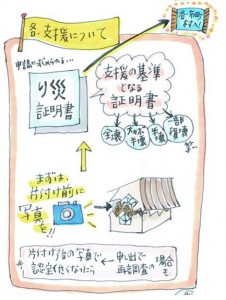 各・支援について
各・市町
ますへ!
申請に求められる…
り災
証明書
支援の基準
となる
証明書
全壊
大規模
半壊
半壊
一部
損壊
等…
まずは、
片付け前に
写真
を!!
※片付け後の写真で
認定低くなったら
申し出で
再調査の
場合も